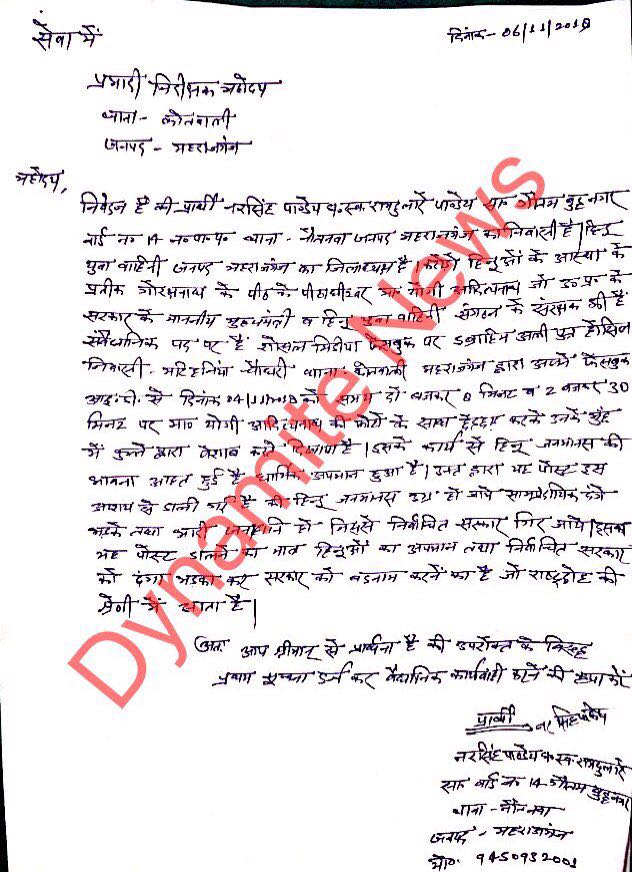 सेवा में
दिनांक- 06/11/2018
प्रभारी निरीक्षक महोदय
थाना- कोतवाली
जनपद- महराजगंज
महोदय,
निवेदन है की प्रार्थी नरसिंह पाण्डेय पुत्र स्व. रामदुलारे पाण्डेय सा० गौतम बुद्ध नगर
वार्ड न० 14 न०पा०प० थाना- नौतनवा जनपद महराजगंज का निवासी है। हिन्दू
युवा वाहिनी जनपद महराजगंज का जिलाध्यक्ष है। करोड़ो हिन्दुओं के आस्था के
प्रतीक गोरक्षनाथ के पीठ के पीठाधीश्वर मा० योगी आदित्यनाथ जो उ०प्र० के
सरकार के माननीय मुख्यमंत्री व हिन्दू युवा वाहिनी संगठन के संरक्षक भी हैं
संवैधानिक पद पर है सोसल मिडीया फेसबुक पर इब्राहिम अली पुत्र होसिल
निवासी- महिनिया चौधरी थाना कोतवाली महराजगंज द्वारा अपने फेसबुक
आई०डी० से दिनांक 04/11/2018 को समय दो बजकर 8 मिनट व 2 बजकर 30
मिनट पर मा० योगी आदित्यनाथ की फोटो के साथ छेड़छाड़ करके उनके मुंह
में कुत्ते द्वारा पेशाब करते दिखाया है। इसके कार्य से हिन्दू जनमानस की
भावना आहत हुई है धार्मिक अपमान हुआ है। उनके द्वारा यह पोस्ट इस
आशय से डाली गई है की हिन्दू जनमानस उग्र हो जाये साम्प्रदायिक दंगे
भड़के तथा भारी जनहानि हो जिससे निर्वाचित सरकार गिर जाये। इसका
यह पोस्ट डालने का भाव हिन्दुओं का अपमान तथा निर्वाचित सरकार
को दंगा भड़का कर सरकार को बदनाम करने का है जो राष्ट्रद्रोह की
श्रेणी में आता है।
अतः आप श्रीमान् से प्रार्थना है की उपरोक्त के विरुद्ध
प्रथम सूचना दर्ज कर वैधानिक कार्यवाही करने की कृपा करें
प्रार्थी
नरसिंह पाण्डेय
नरसिंह पाण्डेय पुत्र स्व. रामदुलारे
सा० वार्ड न० 14 गौतम बुद्ध नगर
थाना- नौतनवा
जनपद - महराजगंज
मो०. 9450932001
Dynamite News